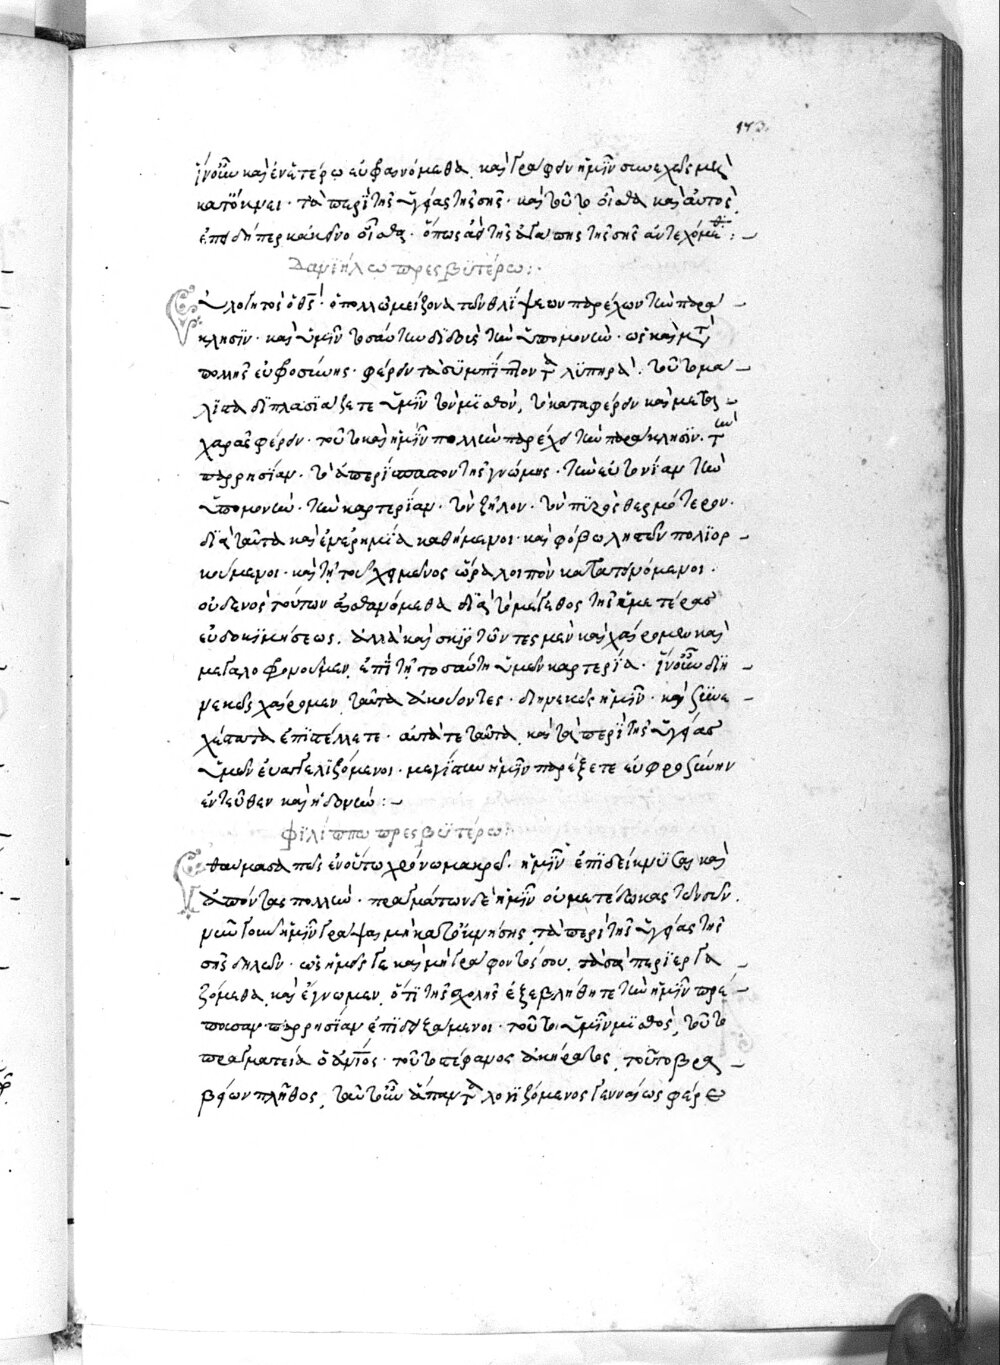 173
ἵν' οὖν καὶ ἐν ἑτέρῳ εὐφραινώμεθα, καὶ γράφειν ἡμῖν συνεχῶς μὴ
κατόκνει· τὰ περὶ τῆς ὑγείας τῆς σῆς· καὶ τοῦτο οἶσθα καὶ αὐτὸς,
ἐπειδήπερ κἀκεῖνο οἶσθα· ὅπως ἀεὶ τῆς ἀγάπης τῆς σῆς ἀντεχόμεθα :
Δανιὴλ ὦ πρεσβυτέρω :
Εὐλογητὸς ὁ θς· ὁ πολλῷ μείζονα τῶν θλίψεων παρέχων τὴν παρά
κλησιν· καὶ ὑμῖν τοσαύτην διδοὺς τὴν ὑπομονὴν· ὡς καὶ μετὰ
πολλῆς εὐφροσύνης· φέρειν τὰ συμπίπτοντα λυπηρά· τοῦτο μά
λιστα διπλασιάζει τε ὑμῖν τὸν μισθὸν, τὸ καταφέρειν καὶ μετὰ
χαρᾶς φέρειν· τοῦτο καὶ ἡμῖν πολλὴν παρέχει τὴν παράκλησιν· τὴν
παρρησίαν· τὸ ἀπερίτρεπτον τῆς γνώμης· τὴν εὐτονίαν τὴν
ὑπομονὴν· τὴν καρτερίαν· τὸν ζῆλον· τὸν πυρὸς θερμότερον·
διὰ ταῦτα καὶ ἐν ἐρημία καθήμενοι· καὶ φόβω ληστῶν πολιορ
κούμενοι· καὶ τῇ τοῦ χειμῶνος ὥρα λοιπὸν κατατεινόμενοι·
οὐδενὸς τούτων αἰσθανόμεθα διὰ τὸ μέγεθος τῆς ἡμετέρας
εὐδοκιμήσεως. ἀλλὰ καὶ σκιρτῶντες μὲν καὶ χαίρομεν καὶ
μεγαλοφρονοῦμεν, ἐπὶ τῇ τοσαύτη ὑμῶν καρτερία· ἵν' οὖν διη
νεκῶς χαίρομεν ταῦτα ἀκούοντες· διηνεκῶς ἡμῖν· καὶ συνε
χέστατα ἐπιστέλλετε· αὐτά τε ταῦτα, καὶ τὰ περὶ τῆς ὑγείας
ὑμῶν εὐαγγελιζόμενοι· μεγίστην ἡμῖν παρέξετε εὐφροσύνην
ἐντεῦθεν καὶ ἡδονὴν :
φιλίππω πρεσβυτέρω
Ἐθαύμασα πῶς ἐν οὕτω χρόνω μακρῷ· ἡμῖν ἐπιδείκνυσαι καὶ
ἀπόντας πολλὴν· πραγμάτων δὲ ἡμῖν οὐ μετέδωκας τῶν σῶν.
νῦν γοῦν ἡμῖν γράψαι μὴ κατοκνήσης τὰ περὶ τῆς ὑγείας τῆς
σῆς δηλῶν· ὡς ἡμεῖς γε καὶ μὴ γράφοντός σου, τὰ σὰ περιεργα
ζόμεθα καὶ ἔγνωμεν, ὅτι τῆς σχολῆς ἐξεβλήθητε τὴν ἡμῖν πρέ
πουσαν παρρησίαν ἐπιδειξάμενοι· τοῦτο ὑμῖν μισθὸς, τοῦτο
πραγματεία ὁ ἀντὸς· τοῦτο στέφανος ἀκήρατος, τοῦτο βρα
βείων πλῆθος, ταῦτ' οὖν ἅπαντα λογιζόμενος γενναίως φέρε